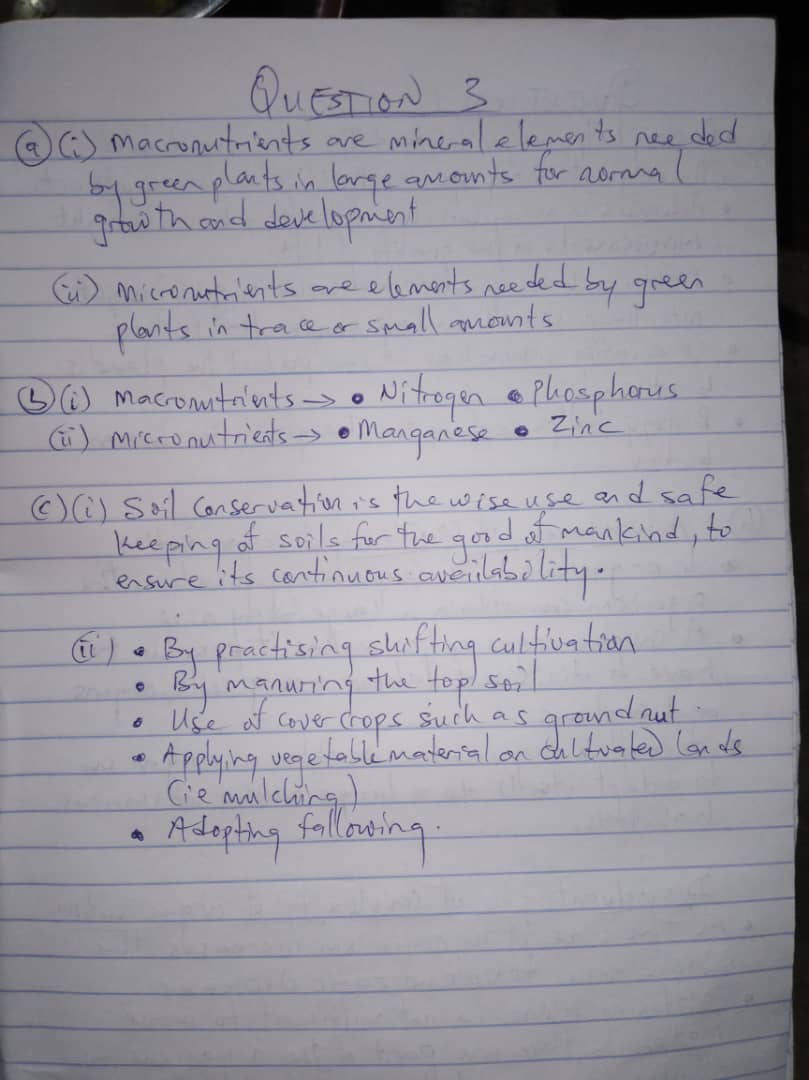 QUESTION 3
(a) (i) Macronutrients are mineral elements needed
by green plants in large amounts for normal
growth and development
(ii) Micronutrients are elements needed by green
plants in trace or small amounts
(b) (i) Macronutrients → • Nitrogen • Phosphorus
(ii) Micronutrients → • Manganese • Zinc
(c) (i) Soil Conservation is the wise use and safe
keeping of soils for the good of mankind, to
ensure its continuous availability.
(ii) • By practising shifting cultivation
• By manuring the top soil
• Use of cover crops such as groundnut.
• Applying vegetable material on cultivated lands
(ie mulching)
• Adopting fallowing.